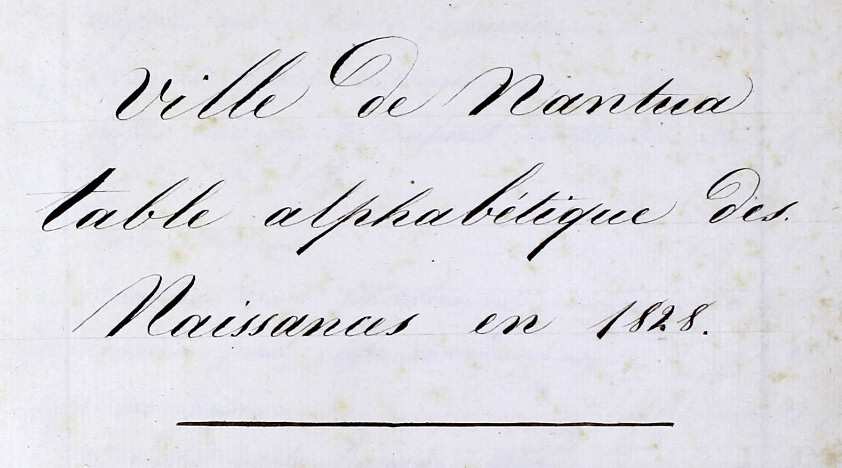 Ville de Nantua
table alphabétique des
Naissances en 1828.